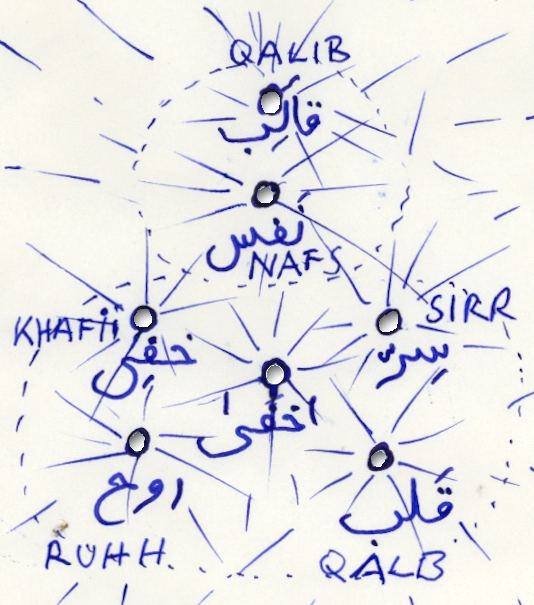 QALIB
قالب
نفس
NAFS
KHAFII
خفی
SIRR
سرّ
اخفیٰ
روح
RUHH
قلب
QALB